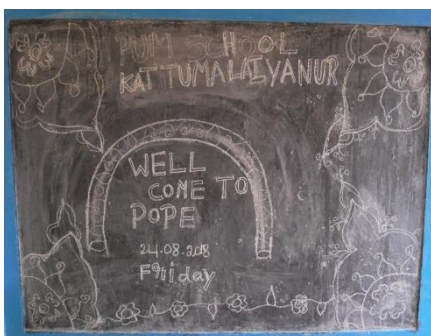 PUM SCHOOL
KATTUMALAIYANUR
WELL
CONE TO
POPE
24.08.2018
Friday